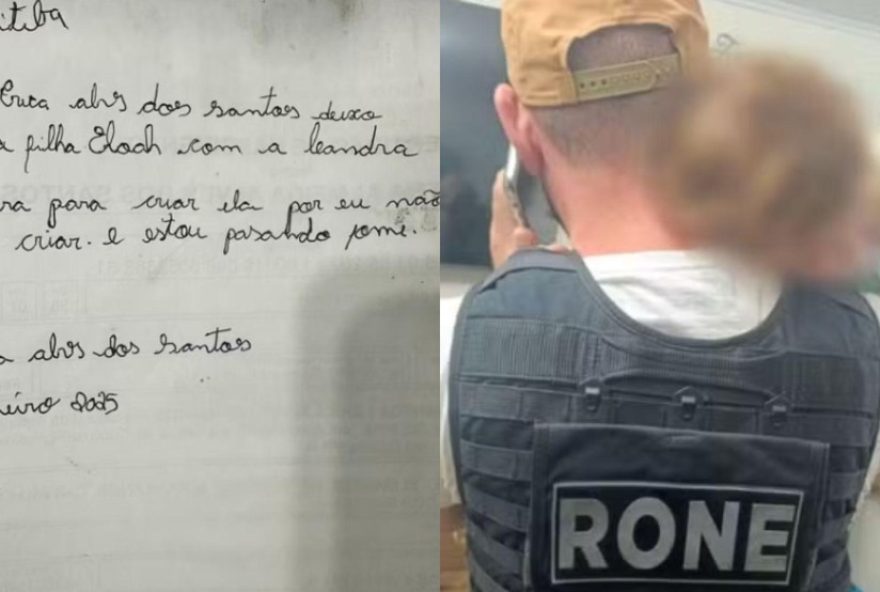 itiba
Erica alvs dos santos deixo
a filha Eloah com a leandra
ra para criar ela por eu não
criar. e estou pasando fome.
a alvs dos santos
eiro 2025
RONE